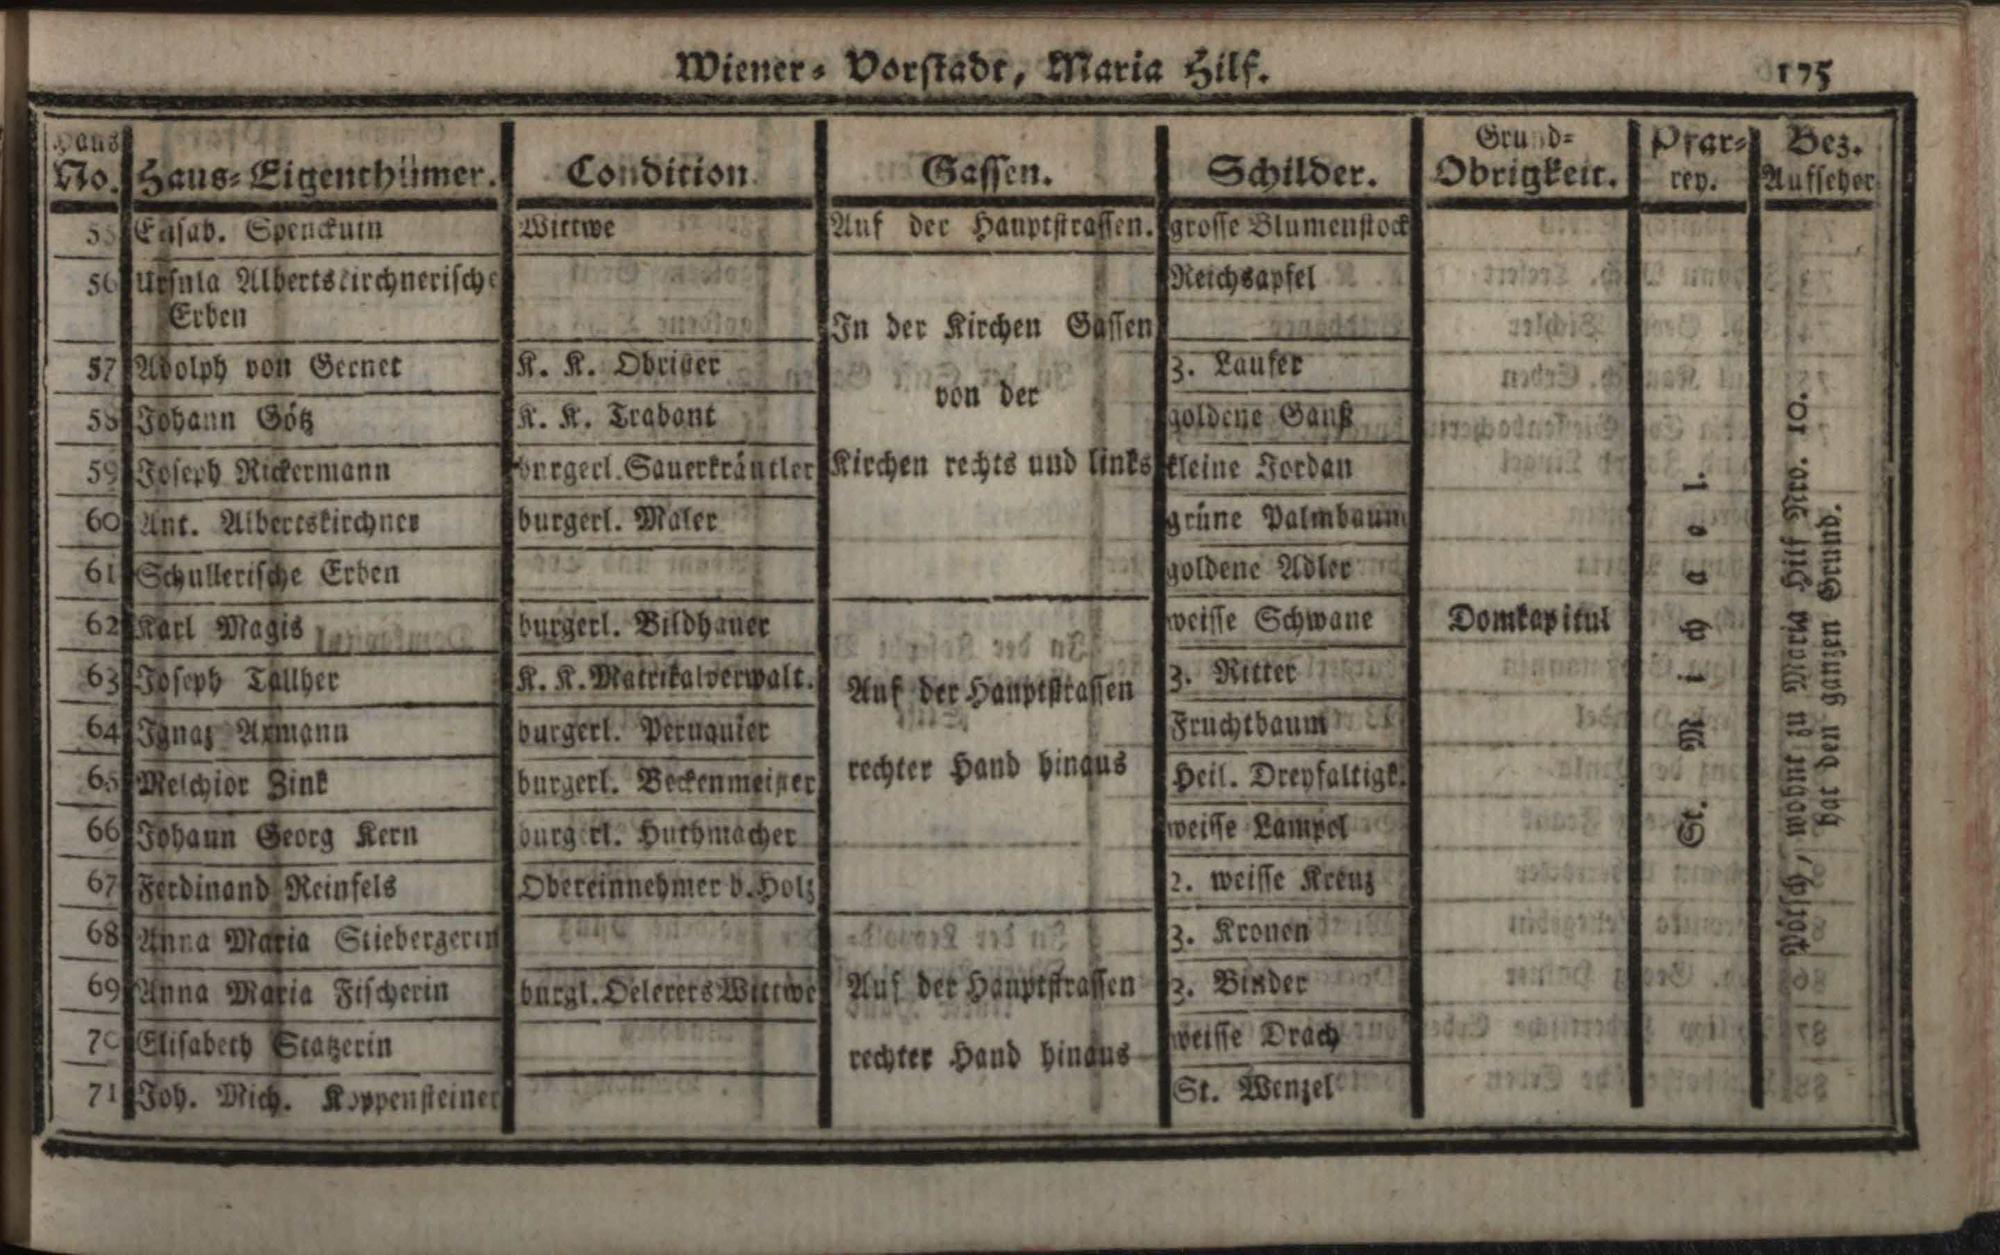 Wiener- Vorstadt, Maria Hilf. 175
Haus No. Haus-Eigenthümer. Condition Gassen. Schilder. Grund-Obrigkeit. Pfar-rey. Bez. Aufseher
55 Elisab. Spenckuin Wittwe Auf der Hauptstrassen. grosse Blumenstock
56 Ursula Albertskirchnerische Reichsapfel
Erben
In der Kirchen Gassen
57 Adolph von Gernet K. K. Obrister 3. Laufer
von der
58 Johann Götz K. K. Trabant goldene Ganß
59 Joseph Rickermann burgerl. Sauerkräutler Kirchen rechts und links kleine Jordan
60 Ant. Albertskirchner burgerl. Maler grüne Palmbaum
61 Schullerische Erben goldene Adler
62 Karl Magis burgerl. Bildhauer weisse Schwane Domkapitul
63 Joseph Tallher K. K. Matrikalverwalt. Auf der Hauptstrassen 3. Ritter
64 Ignaz Axmann burgerl. Peruquier Fruchtbaum
65 Melchior Zink burgerl. Beckenmeister rechter Hand hinaus Heil. Dreyfaltigk.
66 Johann Georg Kern burgerl. Huthmacher weisse Lampel
67 Ferdinand Reinfels Obereinnehmer b. Holz 2. weisse Kreuz
68 Anna Maria Stiebergerin 3. Kronen
69 Anna Maria Fischerin burgl. Oelerers Wittwe Auf der Hauptstrassen 3. Binder
70 Elisabeth Statzerin rechter Hand hinaus weisse Drach
71 Joh. Mich. Koppensteiner St. Wenzel
St. Michael.
Pötsch, wohnt zu Maria Hilf Nro. 10.
hat den ganzen Grund.